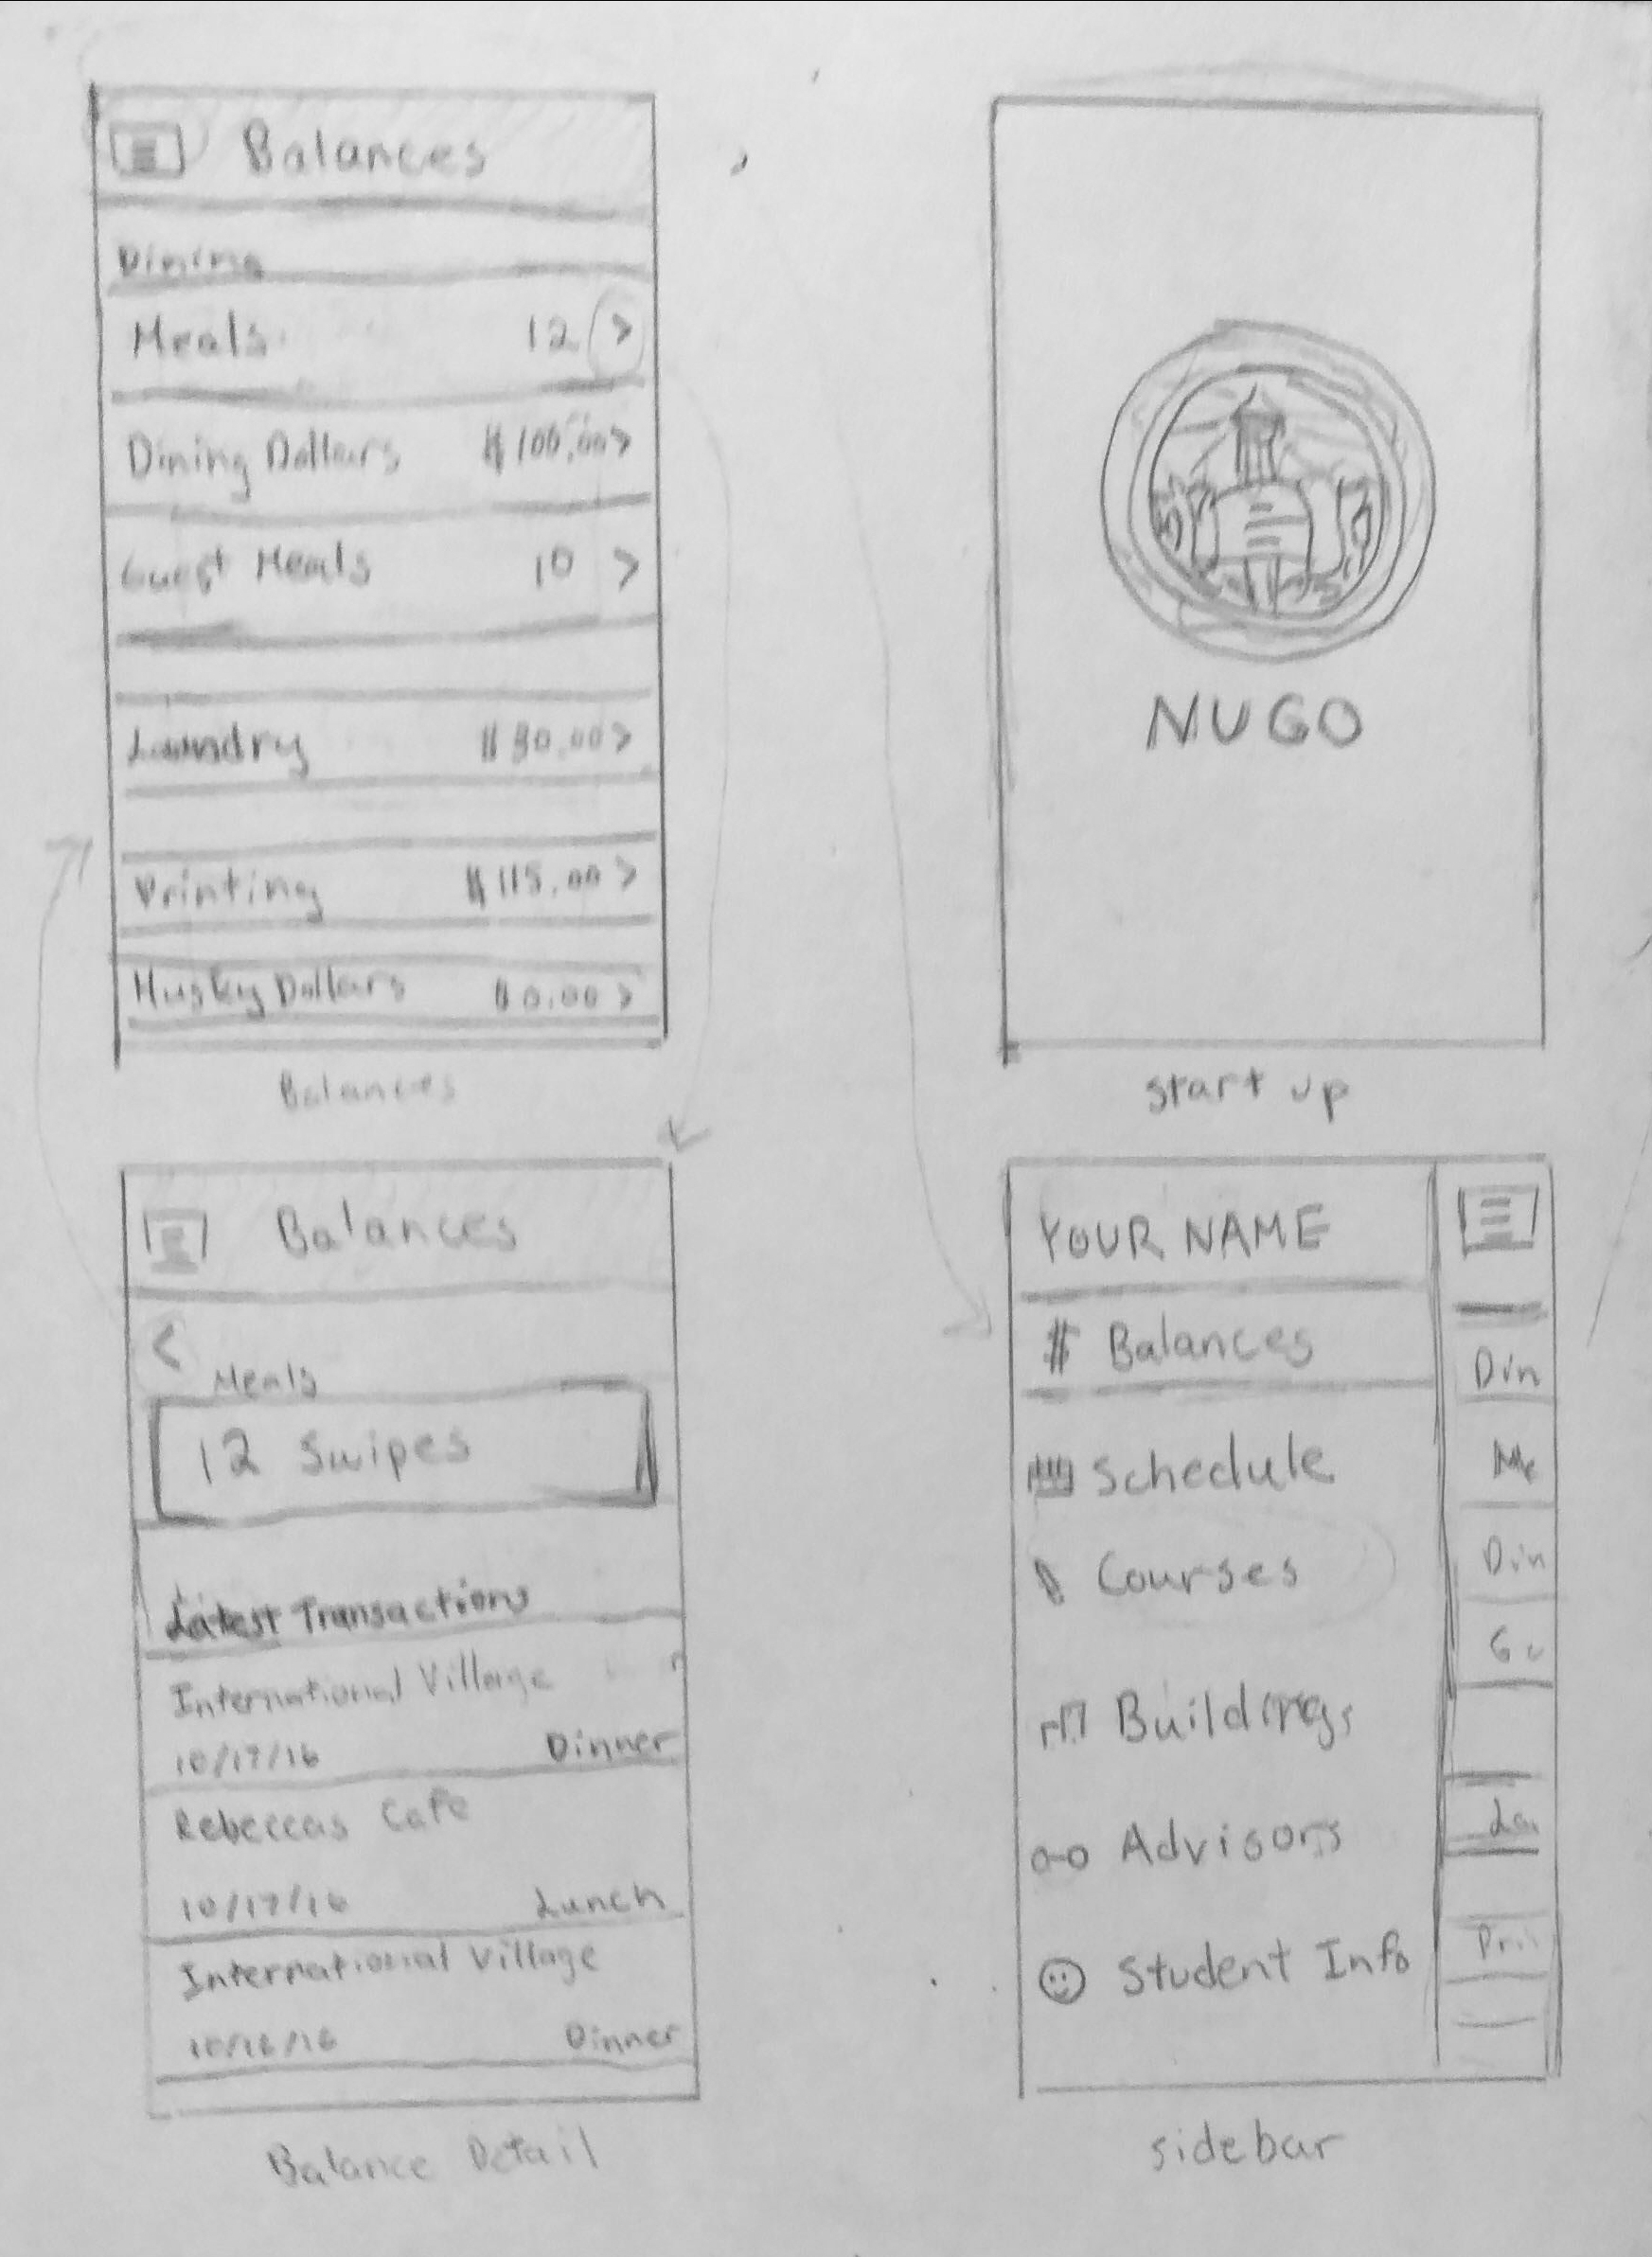 Balances
Dining
Meals 12 >
Dining Dollars $100.00 >
Guest Meals 10 >
Laundry $30.00 >
Printing $115.00 >
Husky Dollars $0.00 >
Balances
NUGO
start up
Balances
<
Meals
12 Swipes
Latest Transactions
International Village
10/17/16 Dinner
Rebeccas Cafe
10/17/16 Lunch
International Village
10/16/16 Dinner
Balance Detail
YOUR NAME
$ Balances
Schedule
Courses
Buildings
Advisors
Student Info
Din
Me
Din
Gu
La
Pri
sidebar